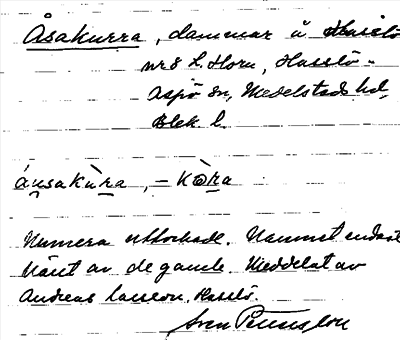 Åsakurra, dammar å Hasslö
nr 8 L. Horn, Hasslö -
Aspö sn, Medelstads hd,
Blek. l.
áu̯sakùrra, – kòra
Numera uttorkade. Namnet endast
känt av de gamle. Meddelat av
Andreas Larsson, Hasslö.
Sven Bengtsson